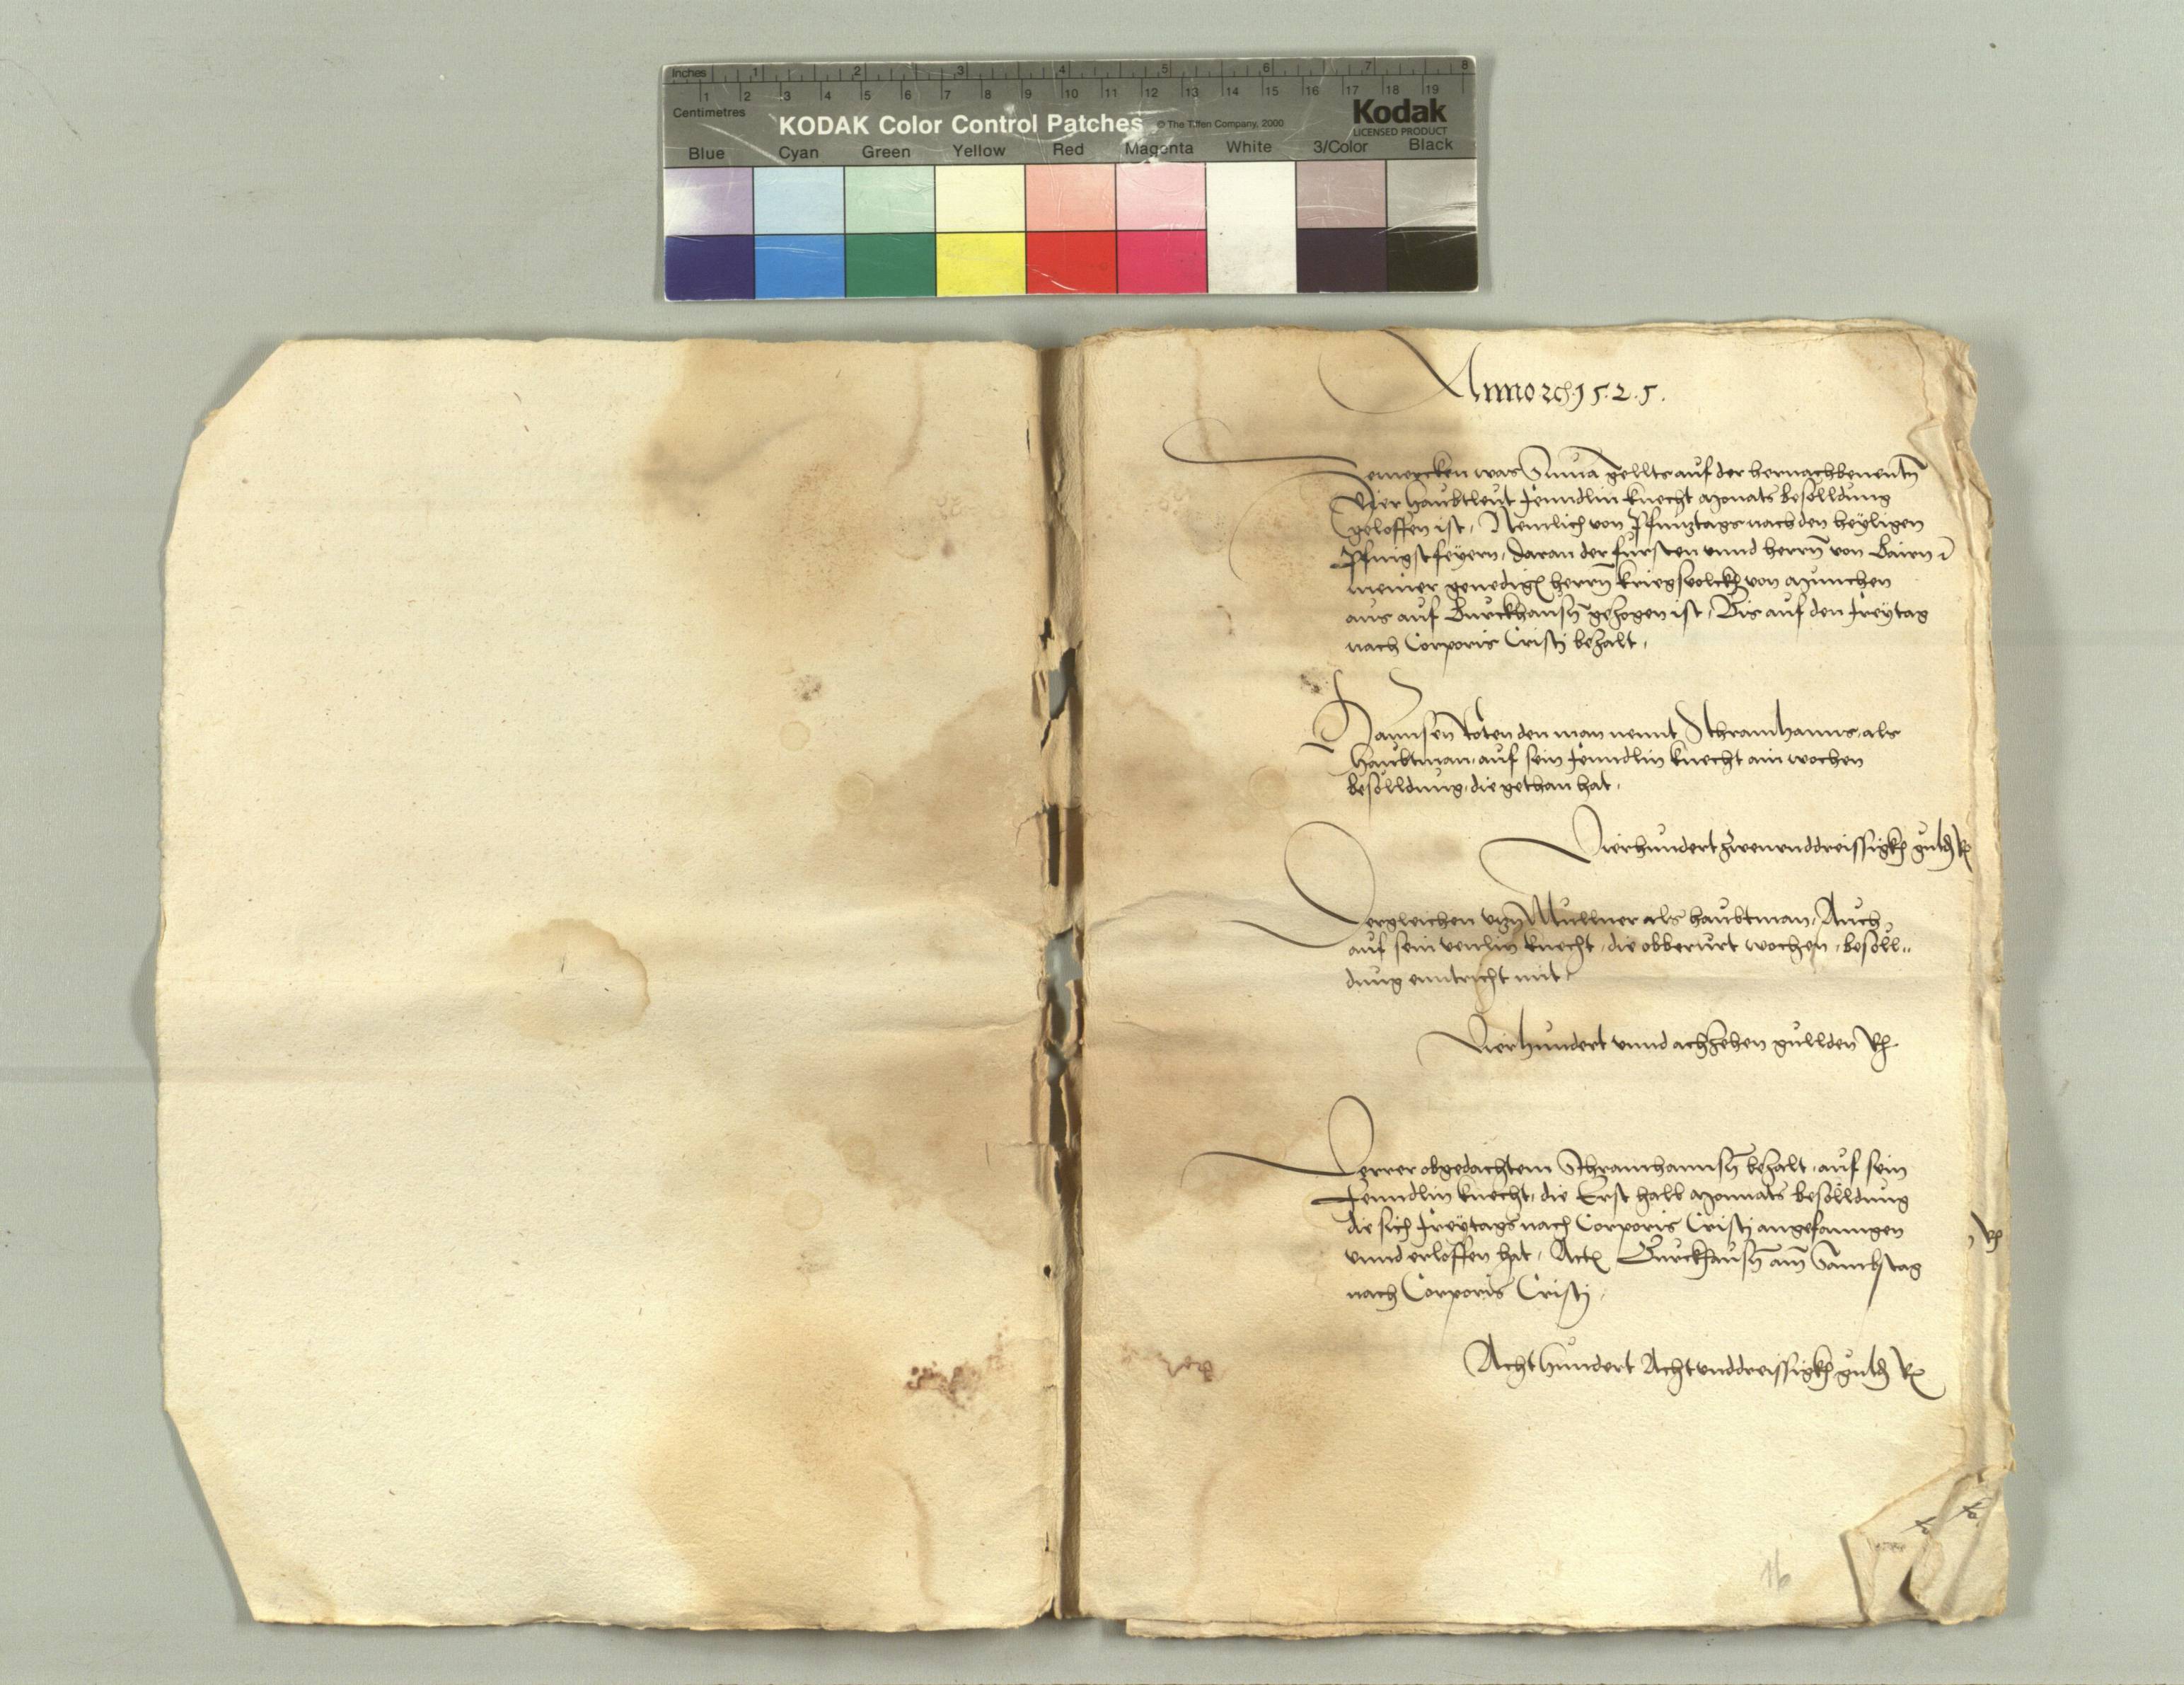 Inches 1 2 3 4 5 6 7 8
1 2 3 4 5 6 7 8 9 10 11 12 13 14 15 16 17 18 19
Centimetres
KODAK Color Control Patches © The Tiffen Company, 2000
Kodak
LICENSED PRODUCT
Blue Cyan Green Yellow Red Magenta White 3/Color Black
Anno 1525.
Zemercken was Suma gellts auf der hernachbenentn
Vier haubtleut Fenndlin knecht monats besolldung
geloffen ist, Nemlich von Pfinztags nach den heyligen
Pfingstfeyern, daran der Fürsten unnd herrn von Bairn
meiner genedig herrn kriegsvolckh von Munchen
aus auf Burckhausn gezogen ist, Bis auf den Freytag
nach Corporis Cristi bezalt,
Hannsen Toten den man nennt Schramhanns, als
haubtman, auf sein Fenndlin knecht ain wochen
besolldung, die gethan hat,
Vierhundert zwenunddreissigkh guld R
Dergleichen Mullner als haubtman, Auch
auf sein venlin knecht, die obberürt wochen, besoll„
dung enntricht mit,
Vierhundert unnd achzehen gullden R
Ferrer obgedachtem Schramhannsn bezalt, auf sein
Fenndlin knecht, die Erst halb monnats besolldung
die sich Freytags nach Corporis Cristi angefanngen
unnd erloffen hat, Act Burckhausn am Sambstag
nach Corporis Cristi,
Achthundert Achtunddreissigkh guld R
16